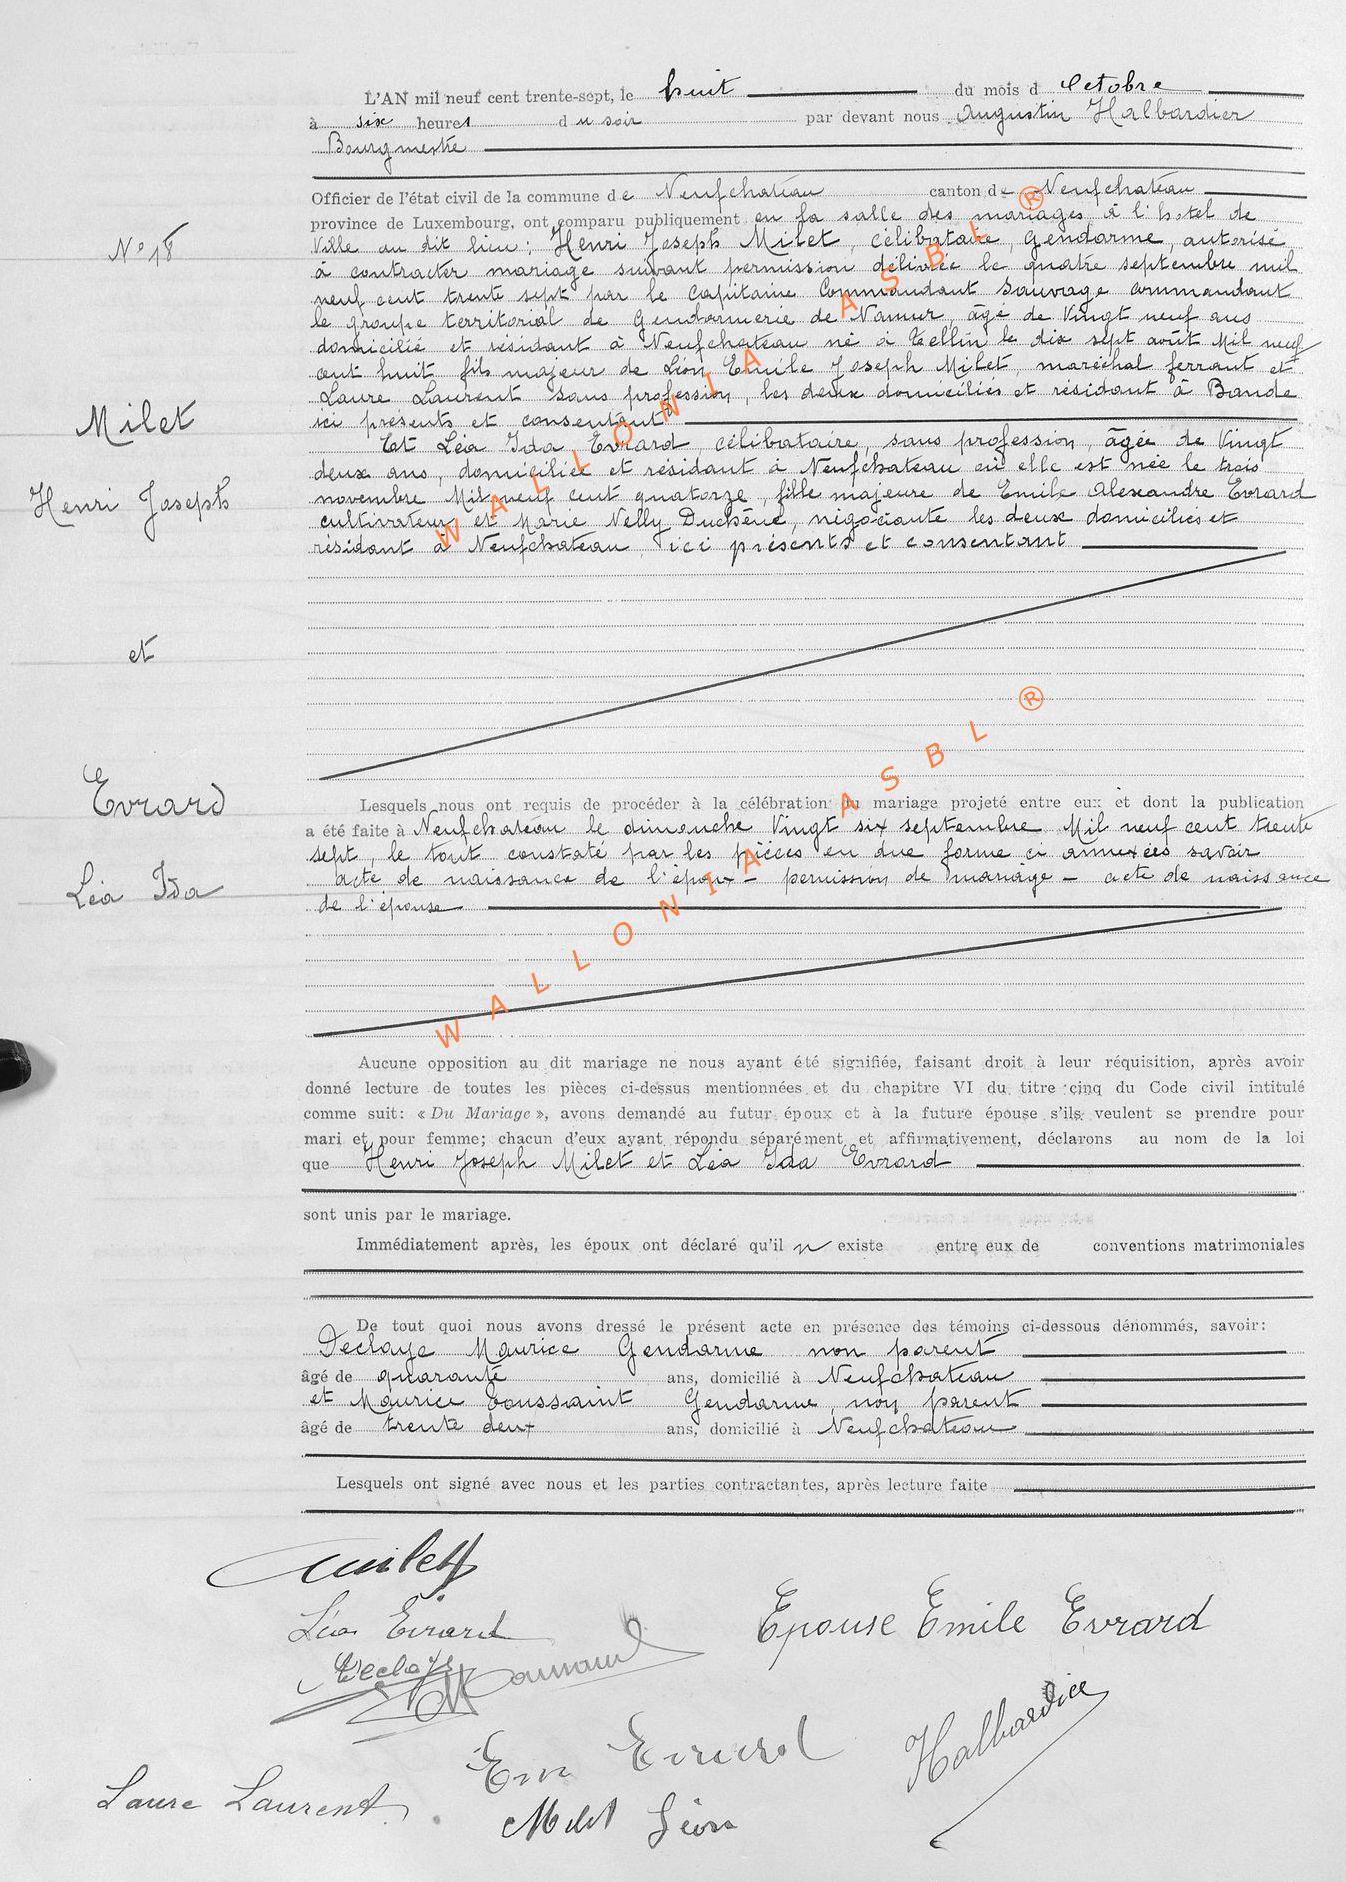 L'AN mil neuf cent trente-sept, le huit du mois d Octobre
à six heures du soir par devant nous Augustin Halbardier
Bourgmestre
Officier de l'état civil de la commune de Neufchateau canton de Neufchateau
province de Luxembourg, ont comparu publiquement en la salle des mariages à l'hotel de
Ville au dit lieu : Henri Joseph Milet, célibataire, gendarme, autorisé
N° 18
à contracter mariage suivant permission délivrée le quatre septembre mil
neuf cent trente sept par le Capitaine Commandant Sauvage commandant
le groupe territorial de Gendarmerie de Namur, âgé de Vingt neuf ans
domicilié et résidant à Neufchateau né à Tellin le dix sept août Mil neuf
cent huit fils majeur de Léon Emile Joseph Milet, maréchal ferrant et
Laure Laurent sans profession, les deux domiciliés et résidant à Bande
ici présents et consentant
Milet
Et Léa Ida Evrard, célibataire, sans profession, âgée de Vingt
deux ans, domiciliée et résidant à Neufchateau où elle est née le trois
novembre Mil neuf cent quatorze, fille majeure de Emile Alexandre Evrard
Henri Joseph
cultivateur et Marie Nelly Duchêne, négociante les deux domiciliés et
résidant à Neufchateau, ici présents et consentant
et
Evrard
Lesquels nous ont requis de procéder à la célébration du mariage projeté entre eux et dont la publication
a été faite à Neufchateau le dimanche Vingt six septembre Mil neuf cent trente
sept, le tout constaté par les pièces en due forme ci annexées savoir
acte de naissance de l'époux - permission de mariage - acte de naissance
Léa Ida
de l'épouse
Aucune opposition au dit mariage ne nous ayant été signifiée, faisant droit à leur réquisition, après avoir
donné lecture de toutes les pièces ci-dessus mentionnées et du chapitre VI du titre cinq du Code civil intitulé
comme suit: « Du Mariage », avons demandé au futur époux et à la future épouse s'ils veulent se prendre pour
mari et pour femme; chacun d'eux ayant répondu séparément et affirmativement, déclarons au nom de la loi
que Henri Joseph Milet et Léa Ida Evrard
sont unis par le mariage.
Immédiatement après, les époux ont déclaré qu'il n existe entre eux de conventions matrimoniales
De tout quoi nous avons dressé le présent acte en présence des témoins ci-dessous dénommés, savoir:
Declaye Maurice Gendarme non parent
âgé de quarante ans, domicilié à Neufchateau
et Maurice Toussaint Gendarme, non parent
âgé de trente deux ans, domicilié à Neufchateau
Lesquels ont signé avec nous et les parties contractantes, après lecture faite
Milet
Léa Evrard
Epouse Emile Evrard
Declaye
Em Evrard
Halbardier
Laure Laurent
Milet Léon
WALLONIA ASBL ®
WALLONIA ASBL ®